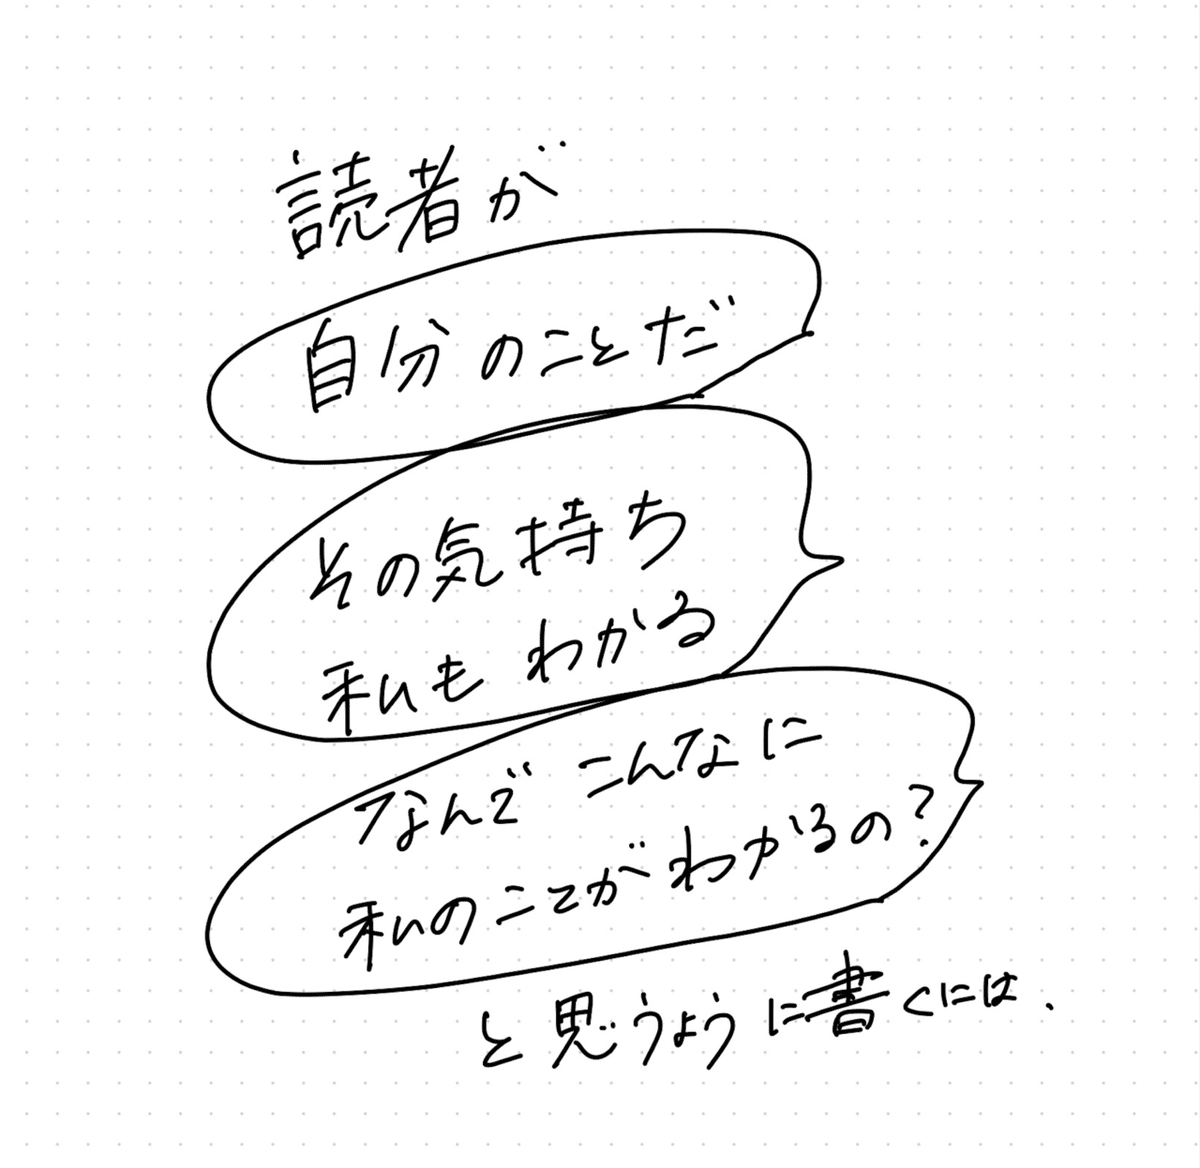 読者が
自分のことだ
その気持ち
私もわかる
なんでこんなに
私のことがわかるの?
と思うように書くには.